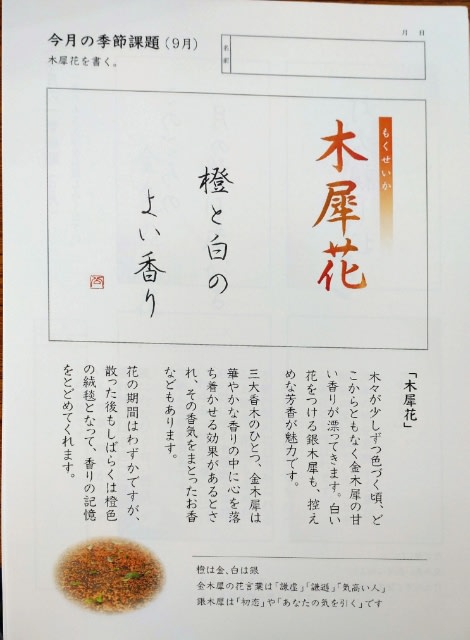 月 日
今月の季節課題(9月)
木犀花を書く。
名前
もくせいか
木犀花
橙と白の
よい香り
「木犀花」
木々が少しずつ色づく頃、ど
こからともなく金木犀の甘
い香りが漂ってきます。白い
花をつける銀木犀も、控え
めな芳香が魅力です。
三大香木のひとつ、金木犀は
華やかな香りの中に心を落
ち着かせる効果があるとさ
れ、その香気をまとったお香
などもあります。
花の期間はわずかですが、
散った後もしばらくは橙色
の絨毯となって、香りの記憶
をとどめてくれます。
橙は金、白は銀
金木犀の花言葉は「謙虚」「謙遜」「気高い人」
銀木犀は「初恋」や「あなたの気を引く」です